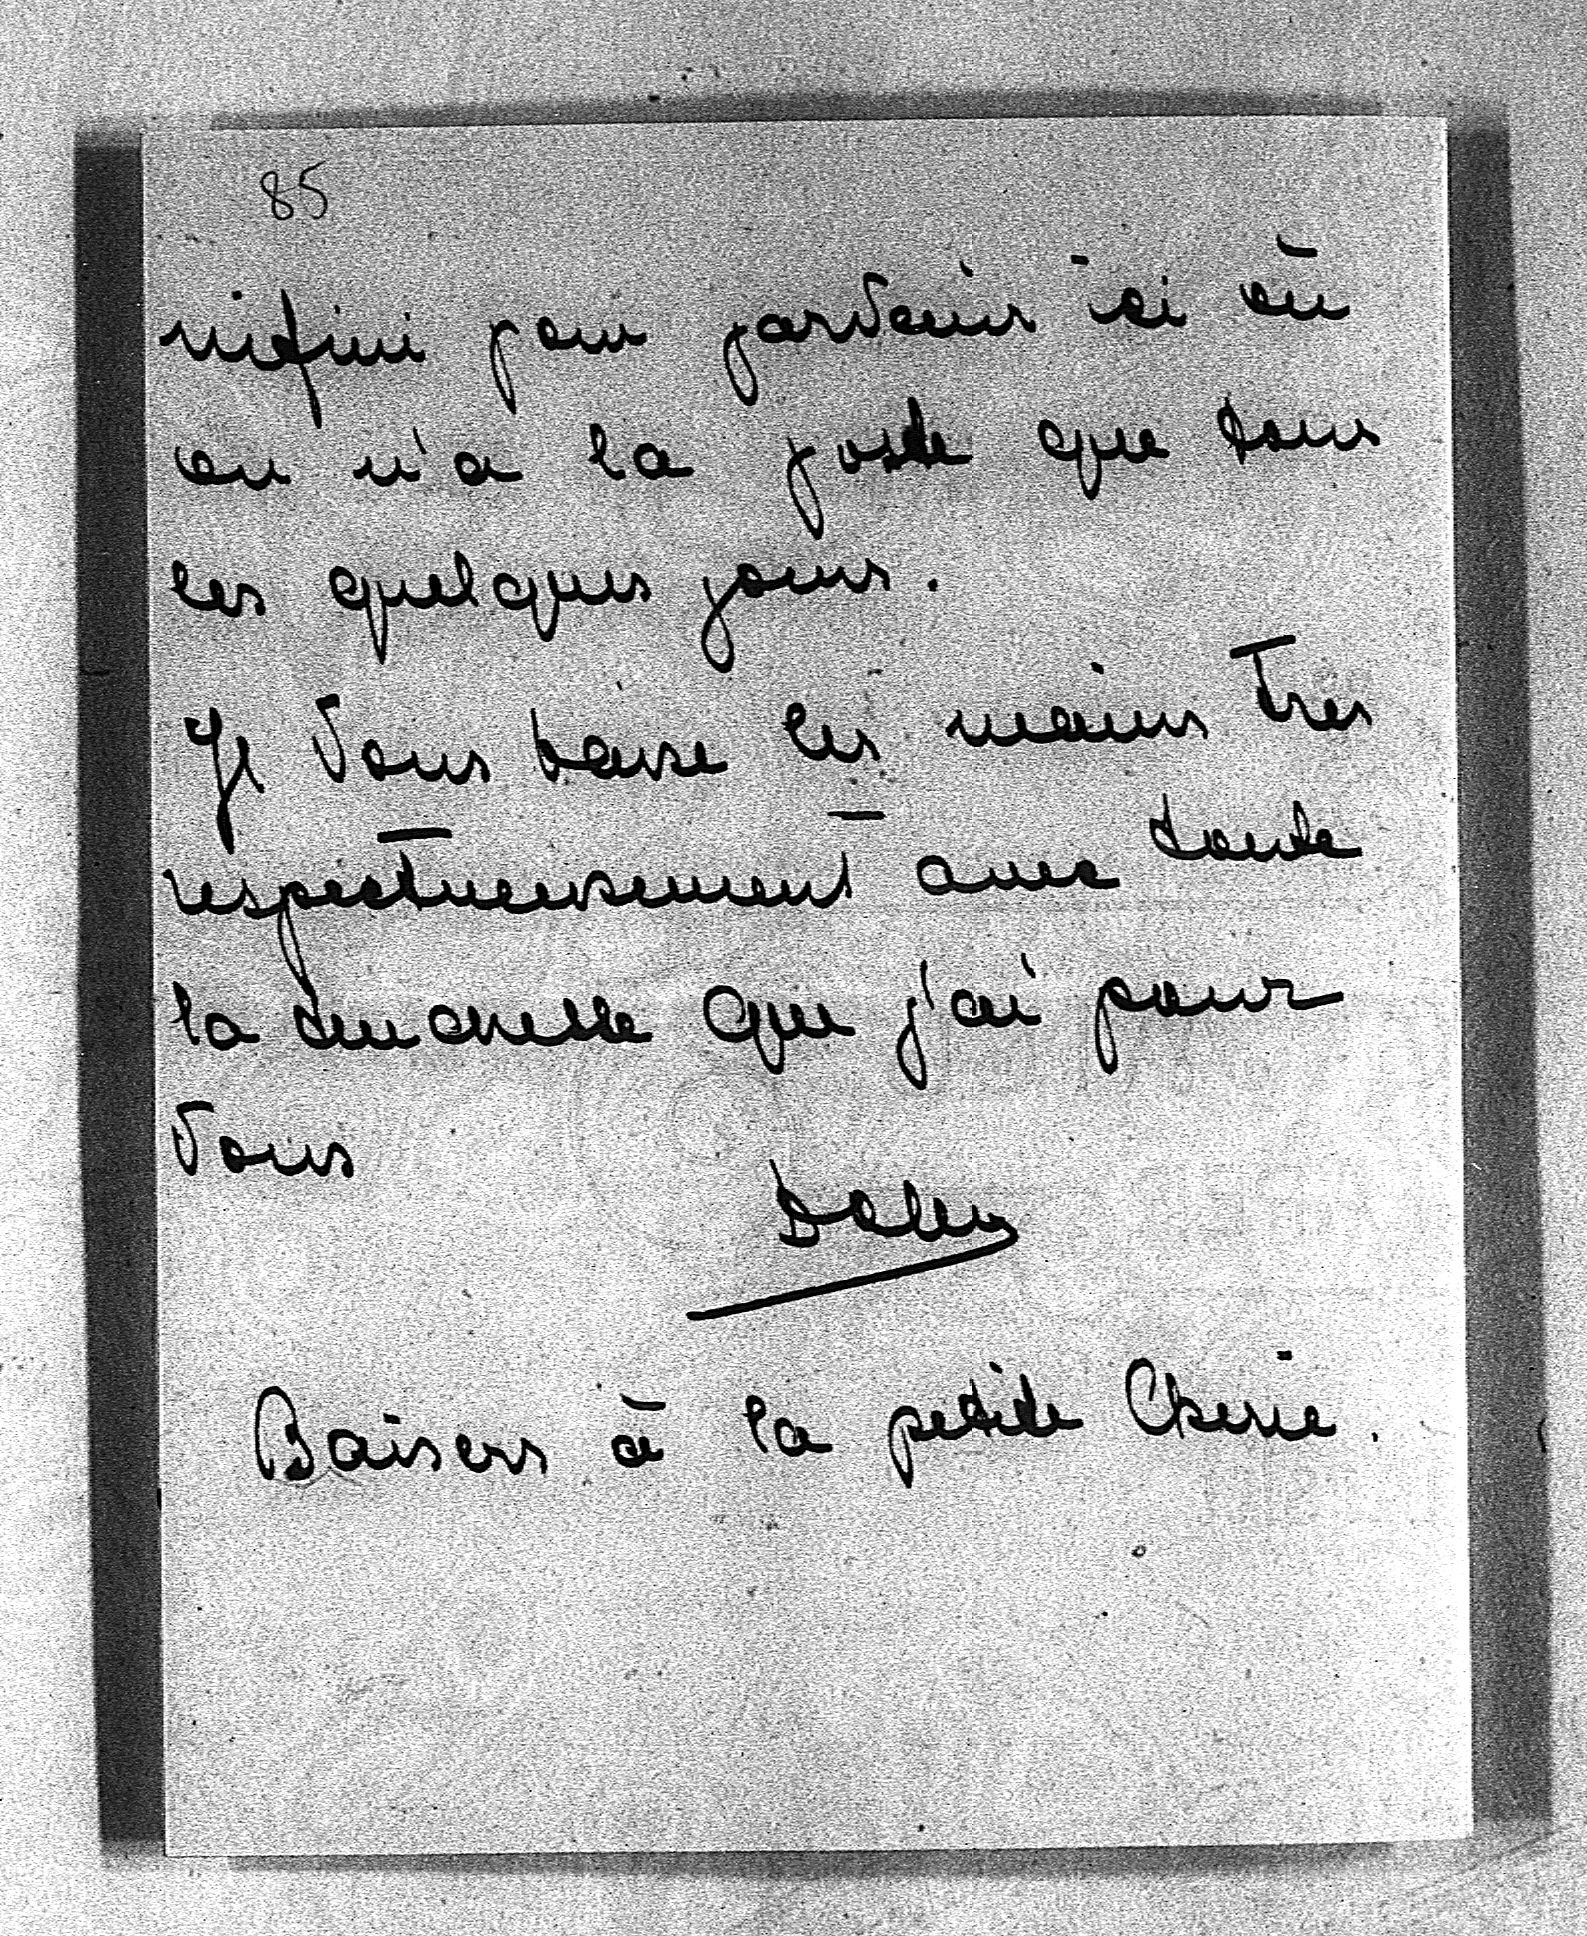 85
infini pour parvenir ici où
on n'a la poste que tous
les quelques jours.
Je vous baise les mains très
respectueusement avec toute
la tendresse que j'ai pour
vous
Baisers à la petite Cherie.